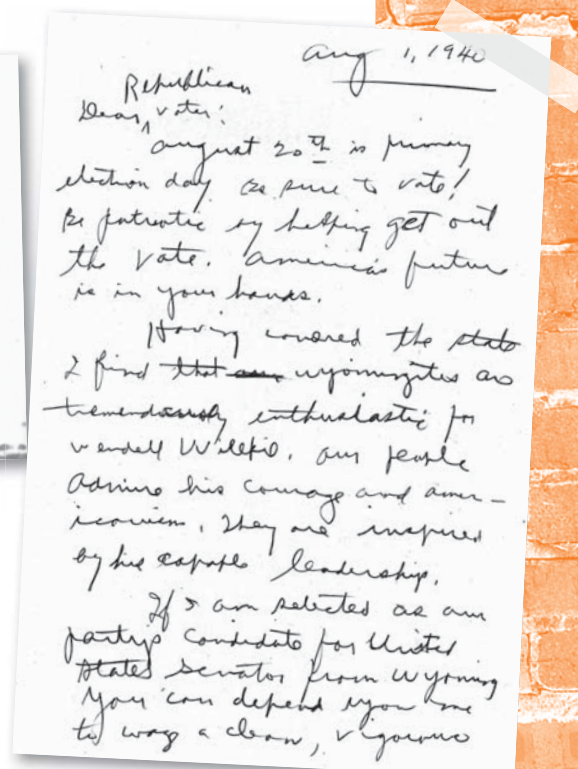 Aug 1, 1940
Republican
Dear ^ Voter:
August 20th is primary
election day. Be sure to vote!
Be patriotic by helping get out
the vote. America's future
is in your hands.
Having covered the state
I find that wyomingites are
tremendously enthusiastic for
Wendell Willkie. Our people
admire his courage and amer-
icanism. They are inspired
by his capable leadership.
If I am selected as our
partys candidate for United
States Senator from Wyoming
you can depend upon me
to wage a clean, vigorous